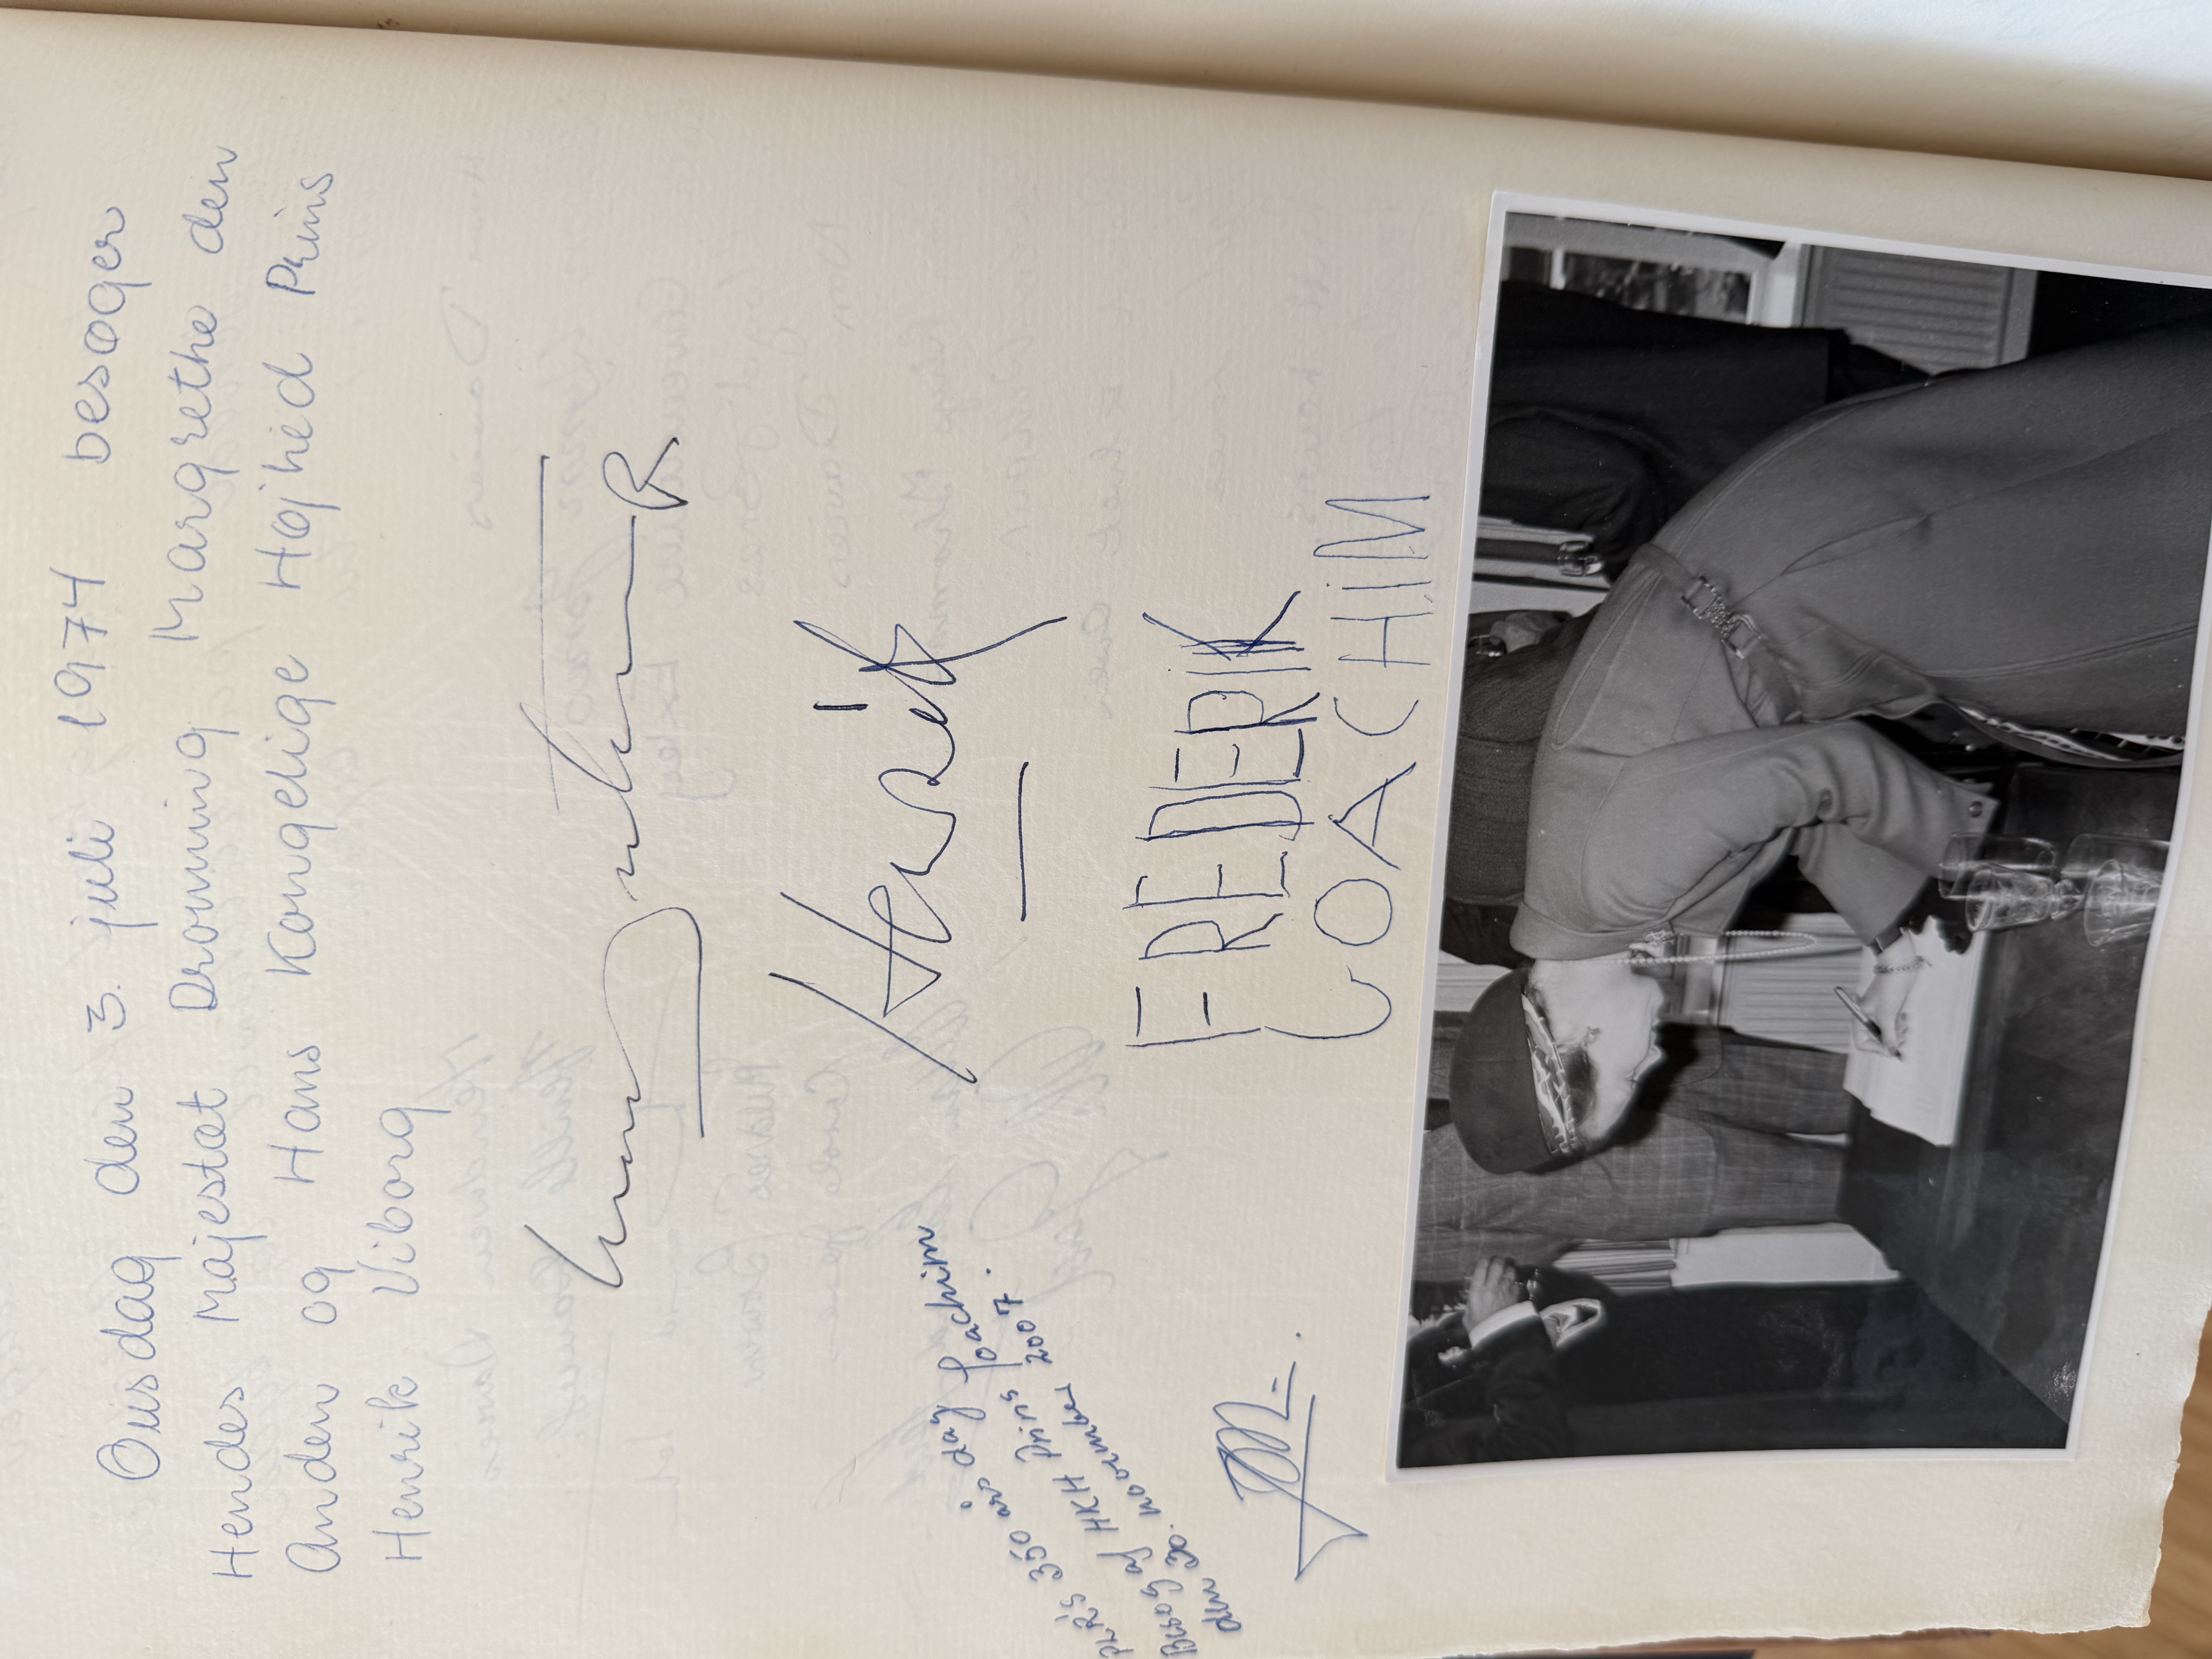 Onsdag den 3. juli 1974 besøger
Hendes Majestæt Dronning Margrethe den
Anden og Hans Kongelige Højhed Prins
Henrik Viborg
Margrethe R
Henrik
FREDERIK
JOACHIM
350 års dag
Besøg af HKH Prins Joachim
den 30. november 2007.